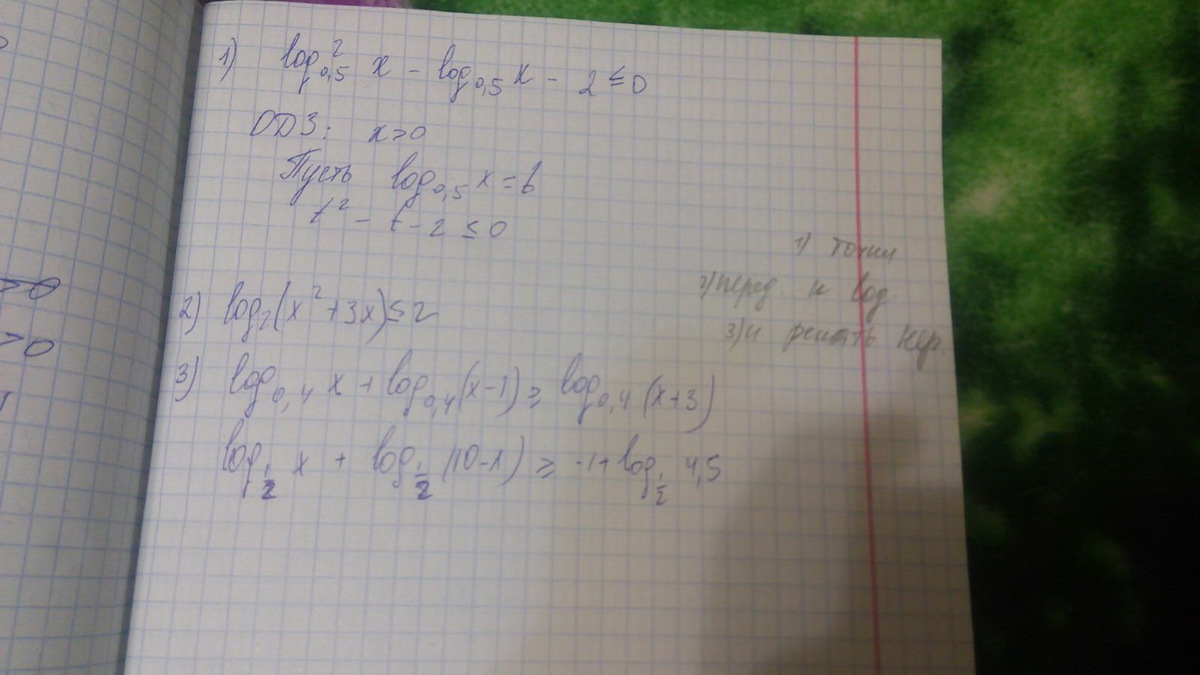 1) log²₀,₅ x - log₀,₅ x - 2 ≤ 0
ОДЗ: x > 0
Пусть log₀,₅ x = t
t² - t - 2 ≤ 0
1) точки
2) перед к log
3) и решать нер.
>0
>0
2) log₂(x² + 3x) ≤ 2
3) log₀,₄ x + log₀,₄ (x-1) ≥ log₀,₄ (x+3)
log½ x + log½ (10-x) ≥ -1 + log½ 4,5